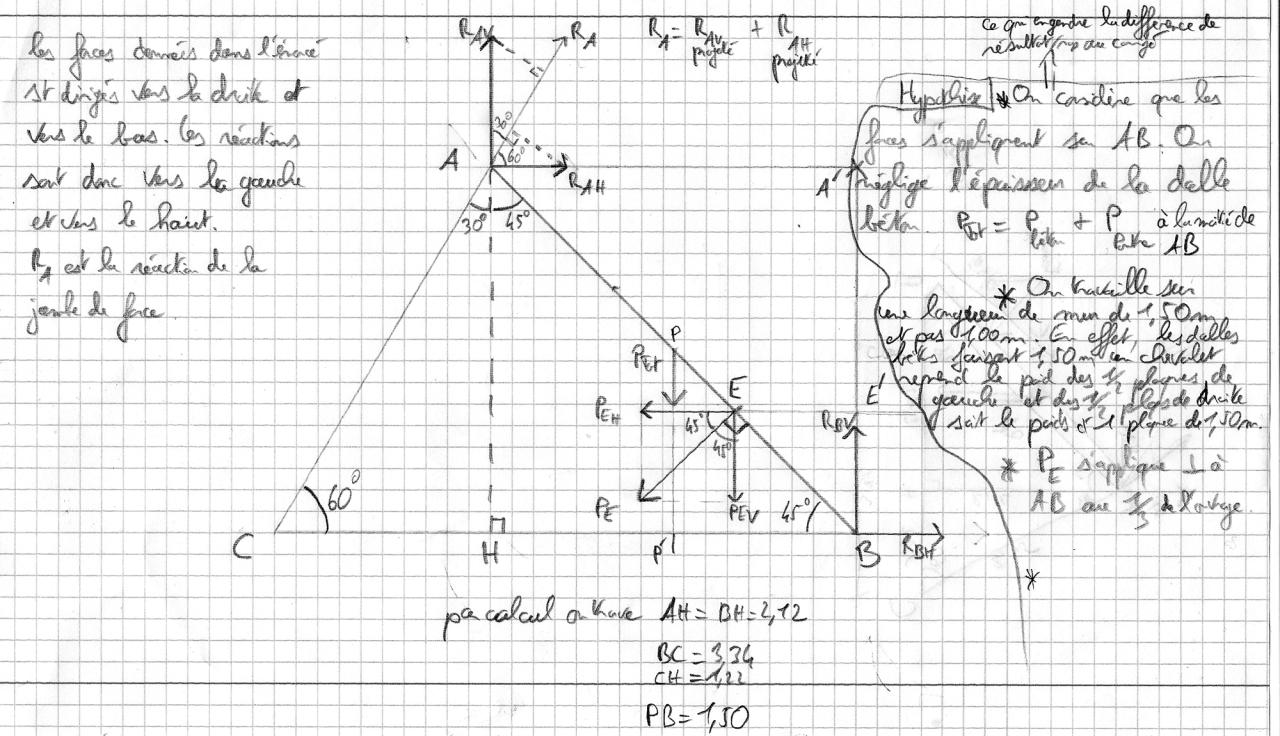 les forces données dans l'énoncé
st dirigés vers la droite et
vers le bas. les réactions
sont donc vers la gauche
et vers le haut.
R_A est la réaction de la
jambe de force.
R_AV
R_A
R_A = R_AV projeté + R_AH projeté
30°
60°
A
R_AH
30° 45°
ce qui engendre la différence de
résultat au corrigé
Hypothèse * On considère que les
forces s'appliquent sur AB. On
A' néglige l'épaisseur de la dalle
béton. P_Et = P béton + P butte à la moitié de AB
* On travaille sur
une longueur de mur de 1,50m
et pas 1,00m. En effet, les dalles
bétons faisant 1,50m un chevalet
reprend le poid des 1/2 plaques de
gauche et des 1/2 plaques de droite
soit le poids d'1 plaque de 1,50m.
* P_E s'applique ⊥ à
AB au 1/3 de l'ouvrage.
*
P
P_Et
E
E'
P_EH
45°
45°
R_BV
P_E
P_EV
45°
60°
C
H
P'
B
R_BH
par calcul on trouve AH = BH = 2,12
BC = 3,34
CH = 1,22
PB = 1,50